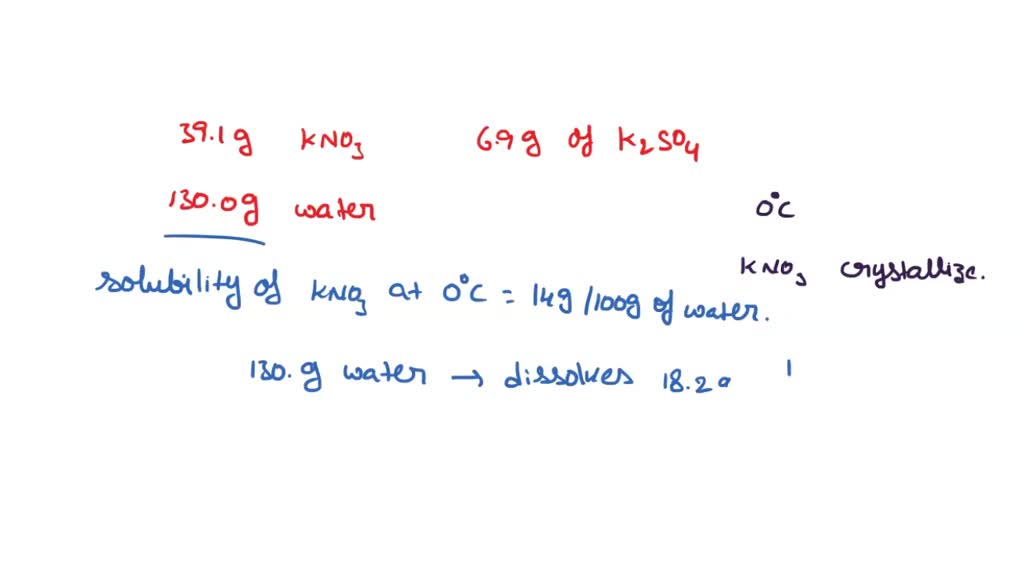 39.1g KNO3 6.9g of K2SO4
130.0g water
0°C
KNO3 crystallize.
solubility of KNO3 at 0°C = 14g /100g of water.
130. g water → dissolves 18.2